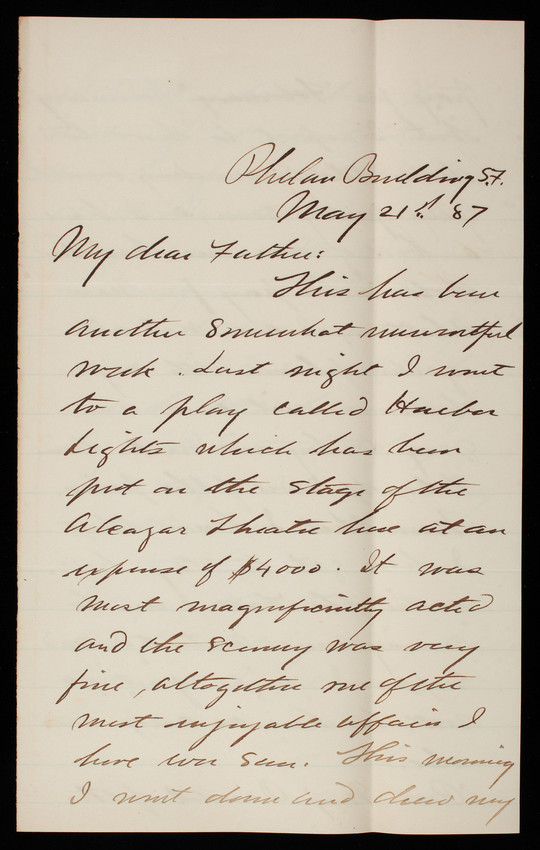 Phelan Building S.F.
May 21st. 87
My dear Father:
This has been
another somewhat uneventful
week. Last night I went
to a play called Harbor
Lights which has been
put on the stage of the
Alcazar Theatre here at an
expense of $4000. It was
most magnificently acted
and the scenery was very
fine, altogether one of the
most enjoyable affairs I
have ever seen. This morning
I went down and drew my